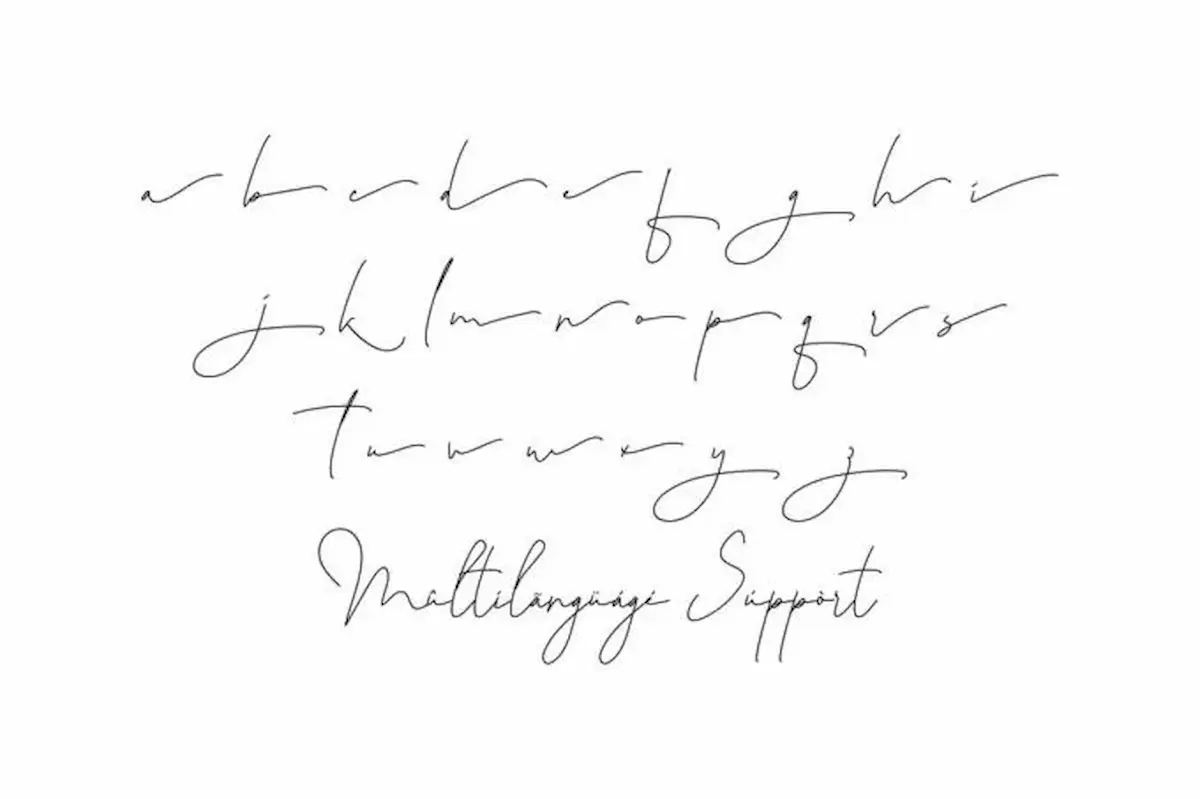 a b c d e f g h i
j k l m n o p q r s
t u v w x y z
Múltilãngüágé Súppòrt